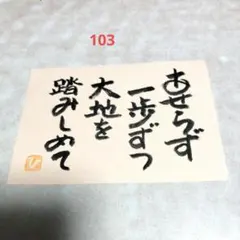 103
あせらず
一歩ずつ
大地を
踏みしめて